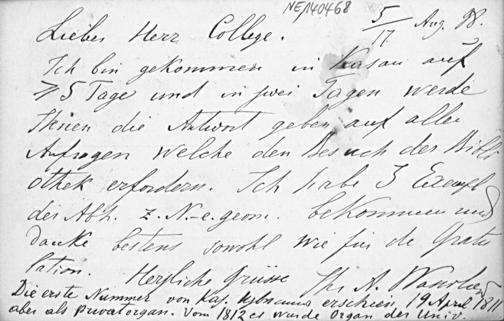 NE/140468
5/17 Aug. 98.
Lieber Herr College.
Ich bin gekommen in Kasan auf
5 Tage und in zwei Tagen werde
Ihnen die Antwort geben auf alle
Anfragen welche den Besuch der Bibli
othek erfordern. Ich habe 3 Exempl
der Abh. z. N.-e. geom. bekommen und
danke bestens sowohl wie für die Gratu
lation. Herzliche Grüsse Ihr A.
Die erste Nummer von Kas. erschien 19 April 1811
aber als Privatorgan. Vom 1812 es wurde Organ der Univ.